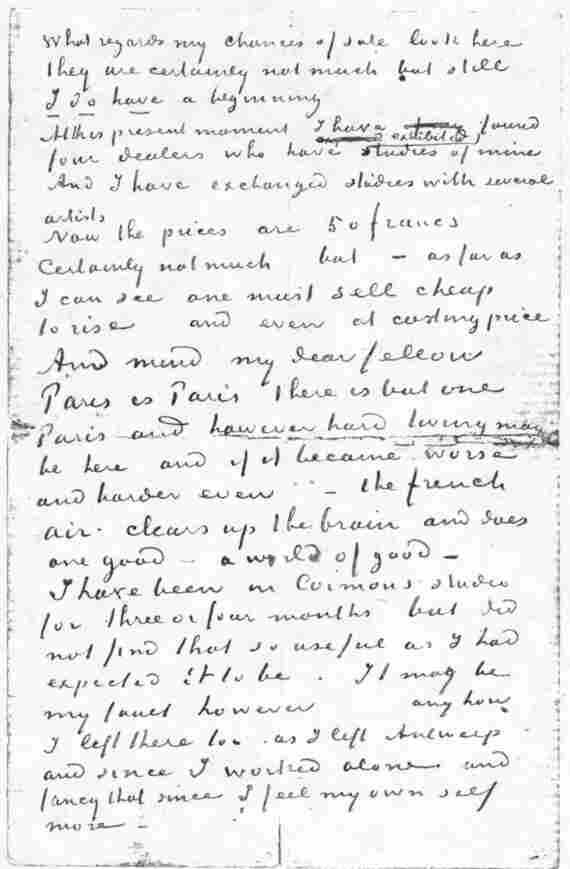 What regards my chances of sale look here
they are certainly not much but still
I do have a beginning
At this present moment I have found
four dealers who have exhibited studies of mine
And I have exchanged studies with several
artists
Now the prices are 50 francs
Certainly not much but – as far as
I can see one must sell cheap
to rise and even at costing price
And mind my dear fellow
Paris is Paris there is but one
Paris and however hard living may
be here and if it became worse
and harder even – the french
air clears up the brain and does
one good – a world of good –
I have been in Cormons studio
for three or four months but did
not find that so useful as I had
expected it to be. It may be
my fault however any how
I left there too as I left Antwerp
and since I worked alone and
fancy that since I feel my own self
more –